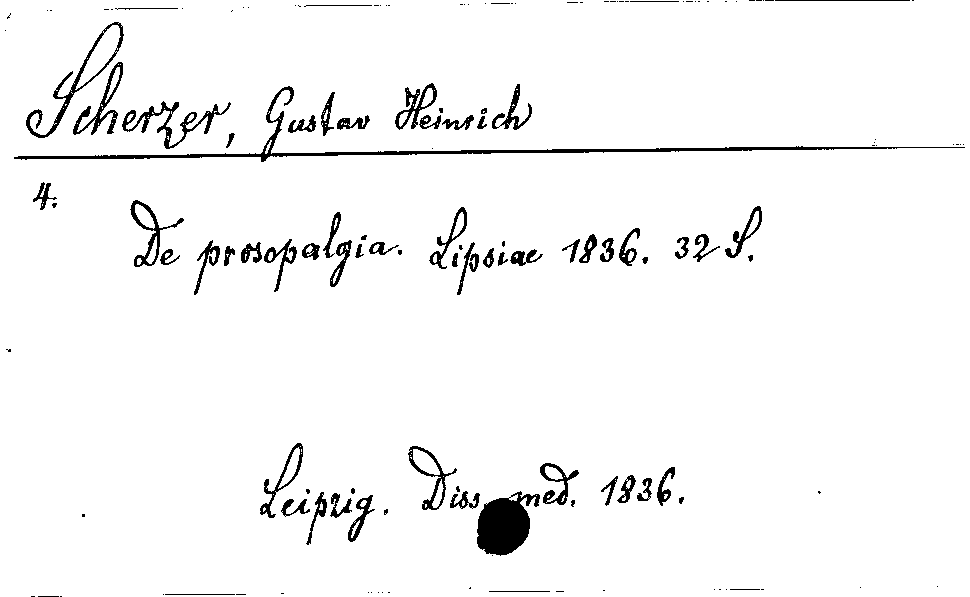 Scherzer, Gustav Heinrich
4.
De prosopalgia. Lipsiae 1836. 32 S.
Leipzig. Diss. med. 1836.